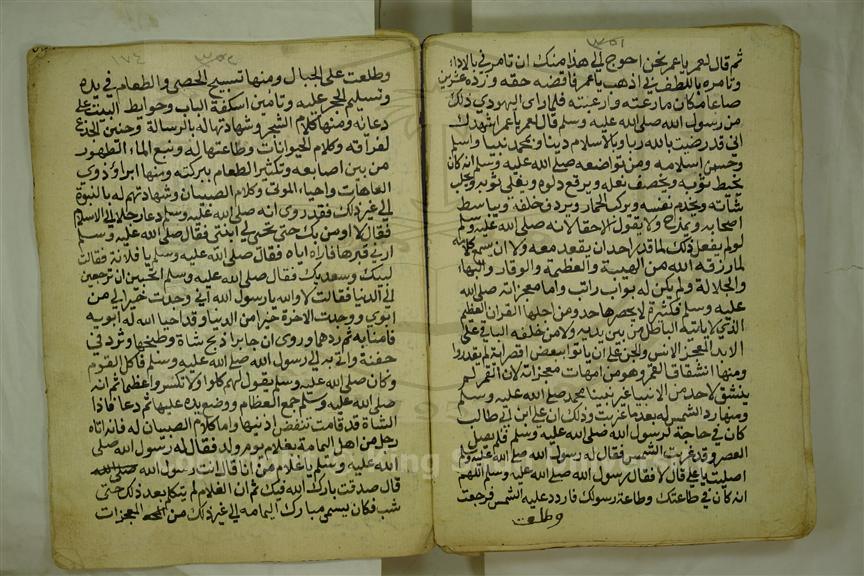 ٣٥١
ثم قال لعمر ياعمر نحن احوج الى هذا منك ان تامرني بالاداء
وتامره باللطف بي اذهب ياعمر فاقضه حقه وزده عشرين
صاعا مكان ما رعته وارعبته فلما راى اليهودي ذلك
من رسول الله صلى الله عليه وسلم قال لعمر ياعمر اشهدك
اني قد رضيت بالله ربا وبالاسلام دينا وبمحمد نبيا واسلم
وحسن اسلامه ومن تواضعه صلى الله عليه وسلم انه كان
يخيط ثوبه ويخصف نعله ويرقع دلوه ويفلي ثوبه ويحلب
شاته ويخدم نفسه ويركب الحمار ويردف خلفه ويباسط
اصحابه ويمزح ولا يقول الا حقا لانه صلى الله عليه وسلم
لو لم يفعل ذلك لما قدر احد ان يقعد معه ولا ان يسمع كلامه
لما رزقه الله من الهيبة والعظمة والوقار والبهاء
والجلالة ولم يكن له بواب راتب واما معجزاته صلى الله
عليه وسلم فكثيرة لا يحصرها حد ومن اجلها القران العظيم
الذي لا ياتيه الباطل من بين يديه ولا من خلفه الباقي على
الابد المعجز الانس والجن على ان ياتوا ببعض اقصراية لم يقدروا
ومنها انشقاق القمر وهو من امهات معجزاته لان القمر لم
ينشق لاحد من الانبيا غير نبينا محمد صلى الله عليه وسلم
ومنها رد الشمس له بعد ما غربت وذلك ان علي ابن ابي طالب
كان في حاجة لرسول الله صلى الله عليه وسلم فلم يصل
العصر وقد غربت الشمس فقال له رسول الله صلى الله عليه وسلم
اصليت يا علي قال لا فقال رسول الله صلى الله عليه وسلم اللهم
انه كان في طاعتك وطاعة رسولك فاردد عليه الشمس فرجعت
وطلعت
وطلعت على الجبال ومنها تسبيح الحصى والطعام في يده
وتسليم الحجر عليه وتامين اسكفة الباب وحوايط البيت على
دعائه ومنها كلام الشجر وشهادتها له بالرسالة وحنين الجذع
لفراقه وكلام الحيوانات وطاعتها له ونبع الماء الطهور
من بين اصابعه وتكثير الطعام ببركته ومنها ابراؤ ذوي
العاهات واحياء الموتى وكلام الصبيان وشهادتهم له بالنبوة
الى غير ذلك فقد روى انه صلى الله عليه وسلم دعا رجلا الى الاسلام
فقال لا اومن بك حتى تحيي لي ابنتي فقال صلى الله عليه وسلم
ارني قبرها فاراه اياه فقال صلى الله عليه وسلم يا فلانة فقالت
لبيك وسعديك فقال صلى الله عليه وسلم اتحبين ان ترجعين
الى الدنيا فقالت لا والله يا رسول الله اني وجدت خيرا لي من
ابوي ووجدت الاخرة خيرا من الدنيا وقد احيا الله له ابويه
فامنا به ثم ردهما وروى ان جابرا ذبح شاة وطبخها وثرد في
جفنة واتى به الى رسول الله صلى الله عليه وسلم فاكل القوم
وكان صلى الله عليه وسلم يقول لهم كلوا ولا تكسروا عظما ثم انه
صلى الله عليه وسلم جمع العظام ووضع يده عليها ثم دعا فاذا
الشاة قد قامت تنفض اذنيها واما كلام الصبيان له فانه اتاه
رجل من اهل اليمامة بغلام يوم ولد فقال له رسول الله صلى
الله عليه وسلم يا غلام من انا قال انت رسول الله
قال صدقت بارك الله فيك ثم ان الغلام لم يتكلم بعد ذلك حتى
شب فكان يسمى مبارك اليمامه الى غير ذلك من المعجزات